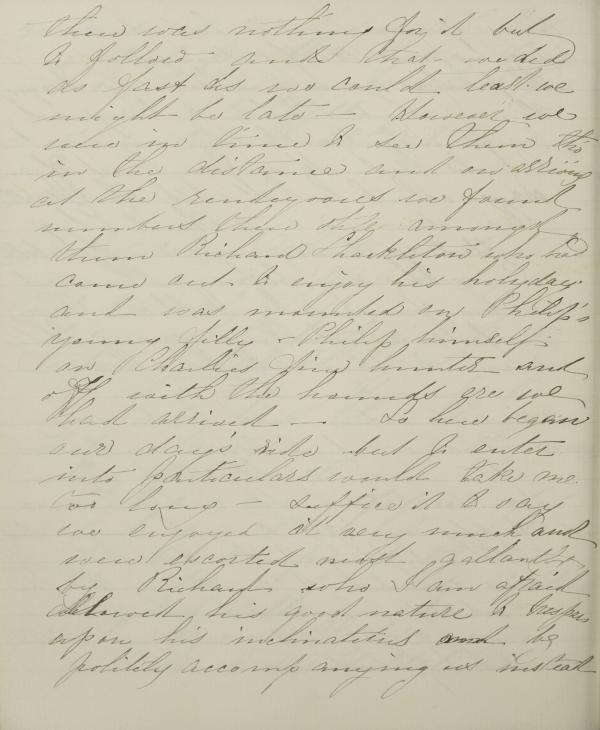 there was nothing for it but
to follow and that we did
as fast as we could least we
might be late — However we
were in time to see them tho
in the distance and on arriving
at the rendezvous we found
numbers there still amongst
them Richard Shackleton who had
come out to enjoy his holyday
and was mounted on Philip's
young filly & Philip himself
on Charlies fine hunter and
off with the hounds ere we
had arrived — So here began
our day's ride but to enter
into particulars would take me
too long — suffice it to say
we enjoyed it very much and
were escorted most gallantly
by Richard who I am afraid
allowed his good nature to trespass
upon his inclinations and by
politely accompanying us instead